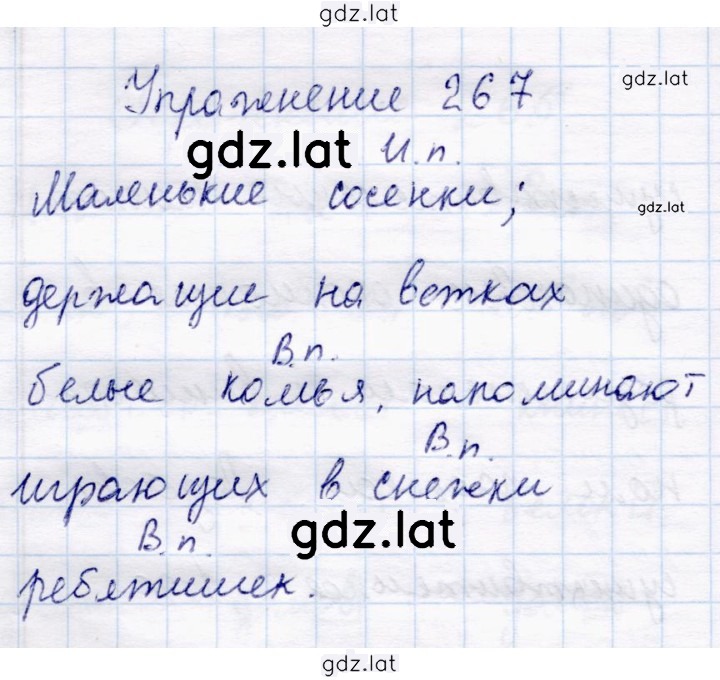 gdz.lat
Упражнение 267
gdz.lat
gdz.lat И.п.
Маленькие сосенки,
gdz.lat
держащие на ветках
В.п.
белые комья, напоминают
В.п.
играющих в снежки
В.п. gdz.lat
ребятишек.
gdz.lat